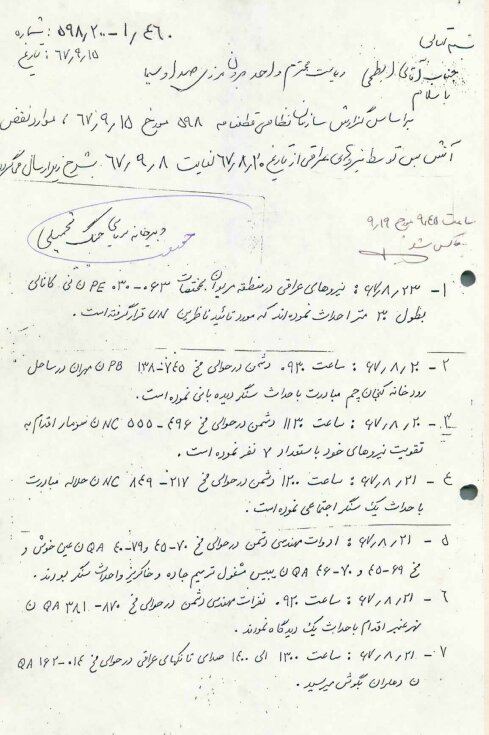 بسمه تعالی
شماره : ۵۹۸٫۲۰۰-۱٫۴۶۰
تاریخ : ۶۷٫۹٫۱۵
جناب آقای ابطحی ریاست محترم واحد برون مرزی صدا و سیما
با سلام
براساس گزارش سازمان نظامی قطعنامه ۵۹۸ مورخ ۶۷٫۹٫۱۵ ، موارد نقض
آتش بس توسط نیروهای عراقی از تاریخ ۶۷٫۸٫۲۰ لغایت ۶۷٫۹٫۸ بشرح زیر ارسال میگردد
دبیرخانه بررسی جنگ تحمیلی
ساعت ۹٫۴۵ مورخ ۹٫۱۹
فاکس شد
۱- ۶۷٫۸٫۲۳ : نیروهای عراقی در منطقه مریوان بمختصات PE ۰۳۰-۰۶۳ کانالی
بطول ۳۰ متر احداث نموده‌اند که مورد تائید ناظرین UN قرار گرفته است .
۲- ۶۷٫۸٫۲۰ : ساعت ۰۹۳۰ دشمن در حوالی مخ PB ۱۳۸-۷۴۵ ن مهران در ساحل
رودخانه کنجان چم مبادرت باحداث سنگر دیده بانی نموده است .
۳- ۶۷٫۸٫۲۰ : ساعت ۱۱۳۰ دشمن در حوالی مخ NC ۵۵۵-۴۹۶ ن سومار اقدام به
تقویت نیروهای خود با استعداد ۷ نفر نموده است .
۴- ۶۷٫۸٫۲۱ : ساعت ۱۲۰۰ دشمن در حوالی مخ NC ۸۴۹-۲۱۷ ن حلاله مبادرت
باحداث یک سنگر اجتماعی نموده است .
۵- ۶۷٫۸٫۲۱ : ادوات مهندسی دشمن در حوالی مخ ۷۰-۴۵ و ۷۹-۴۰ QA ن عین خوش و
مخ ۶۹-۴۵ و ۷۰-۴۶ QA ن بیس مشغول ترمیم جاده و خاکریز و احداث سنگر بودند .
۶- ۶۷٫۸٫۲۱ : ساعت ۰۹۲۰ نفرات مهندسی دشمن در حوالی مخ QA ۳۸۱-۸۷۰ ن
نهر عنبر اقدام باحداث یک دیدگاه نمودند .
۷- ۶۷٫۸٫۲۱ : ساعت ۱۳۰۰ الی ۱۴۰۰ صدای تانکهای عراقی در حوالی مخ QA ۱۶۲-۰۱۴
ن دهلران بگوش میرسید .